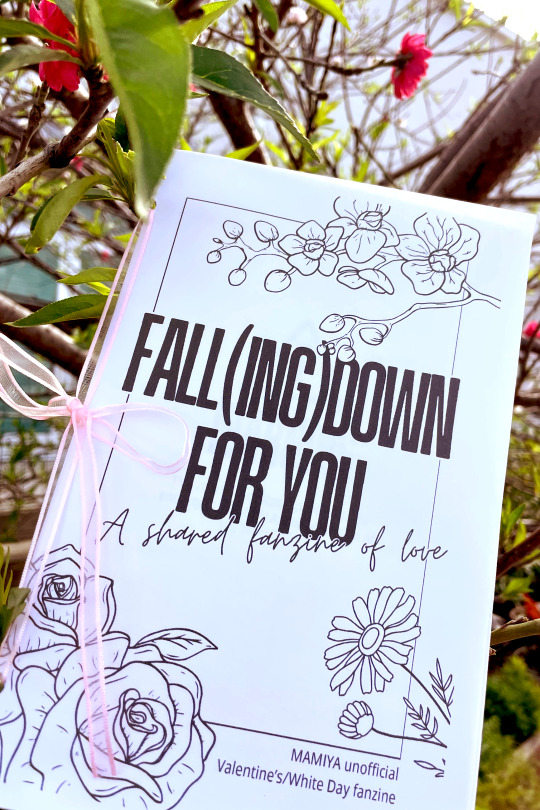 FALL(ING)DOWN
FOR YOU
A shared fanzine of love
MAMIYA unofficial
Valentine's/White Day fanzine